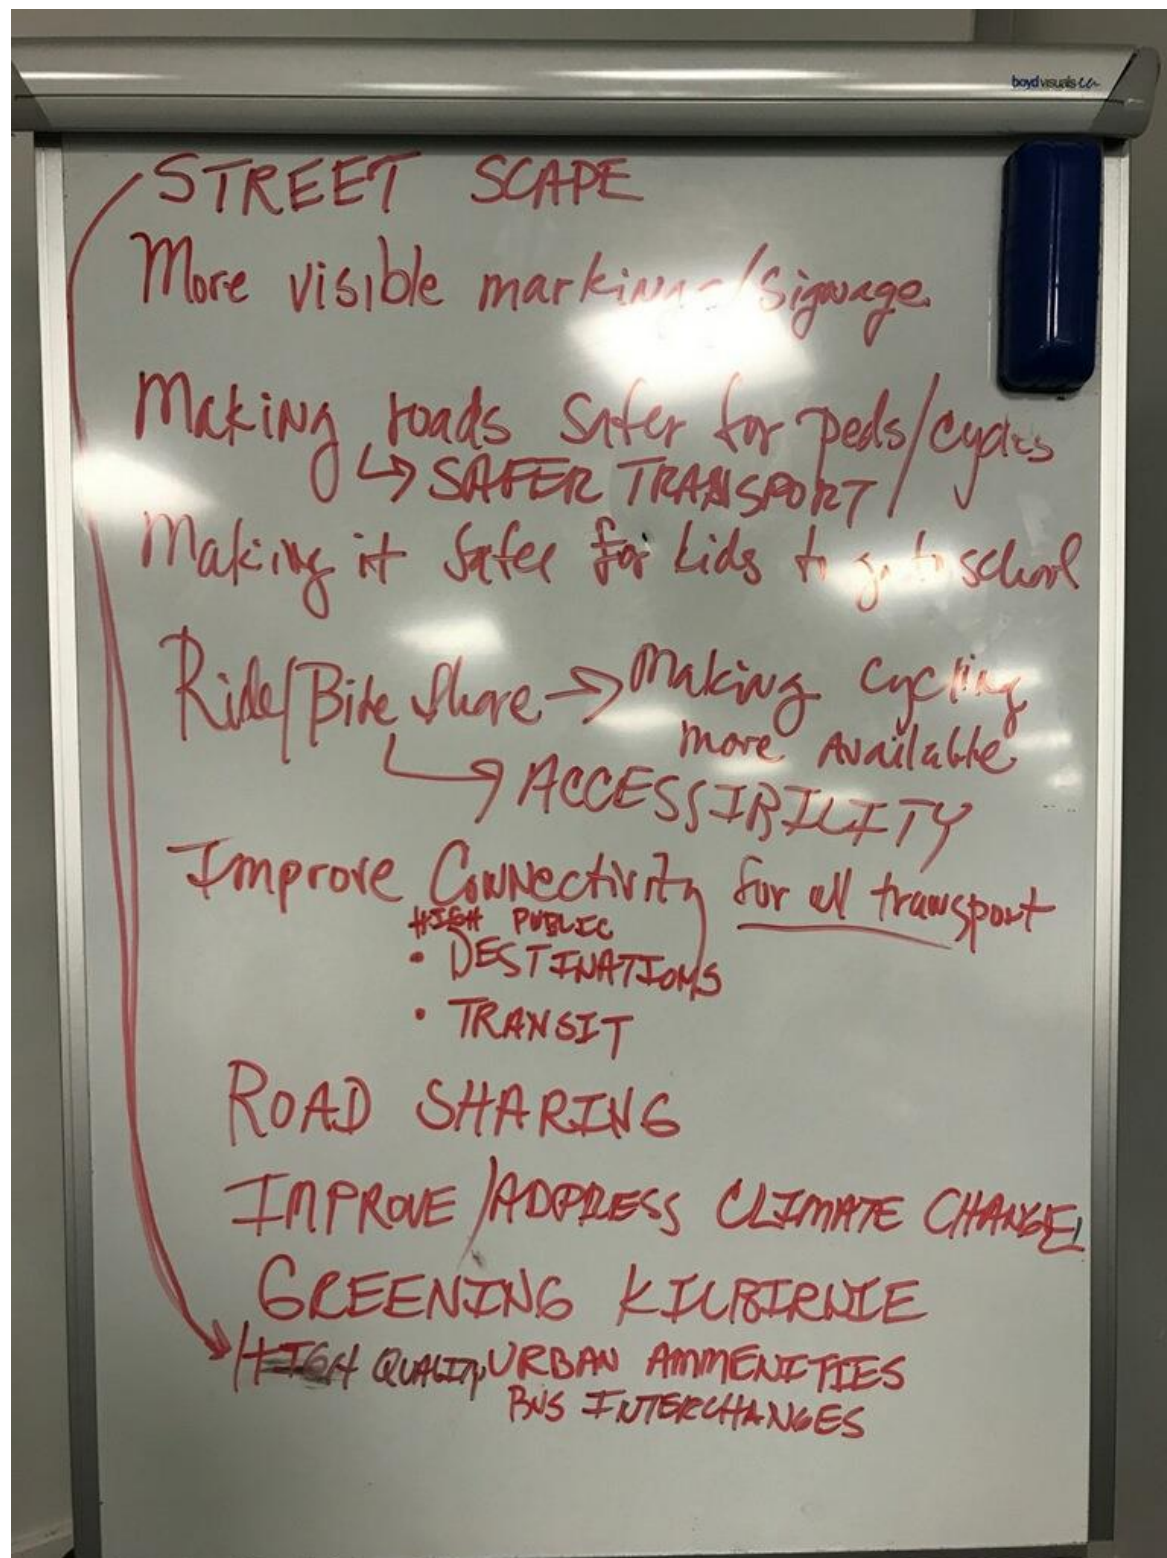 boydvisuals
STREET SCAPE
More visible markings/signage
Making roads safer for peds/cycles
↳ SAFER TRANSPORT
Making it safer for kids to go to school
Ride/Bike Share → Making cycling
more available
↳ ACCESSIBILITY
Improve Connectivity for all transport
HIGH PUBLIC
• DESTINATIONS
• TRANSIT
ROAD SHARING
IMPROVE/ADDRESS CLIMATE CHANGE
GREENING KILBIRNIE
HIGH QUALITY URBAN AMMENITIES
BUS INTERCHANGES